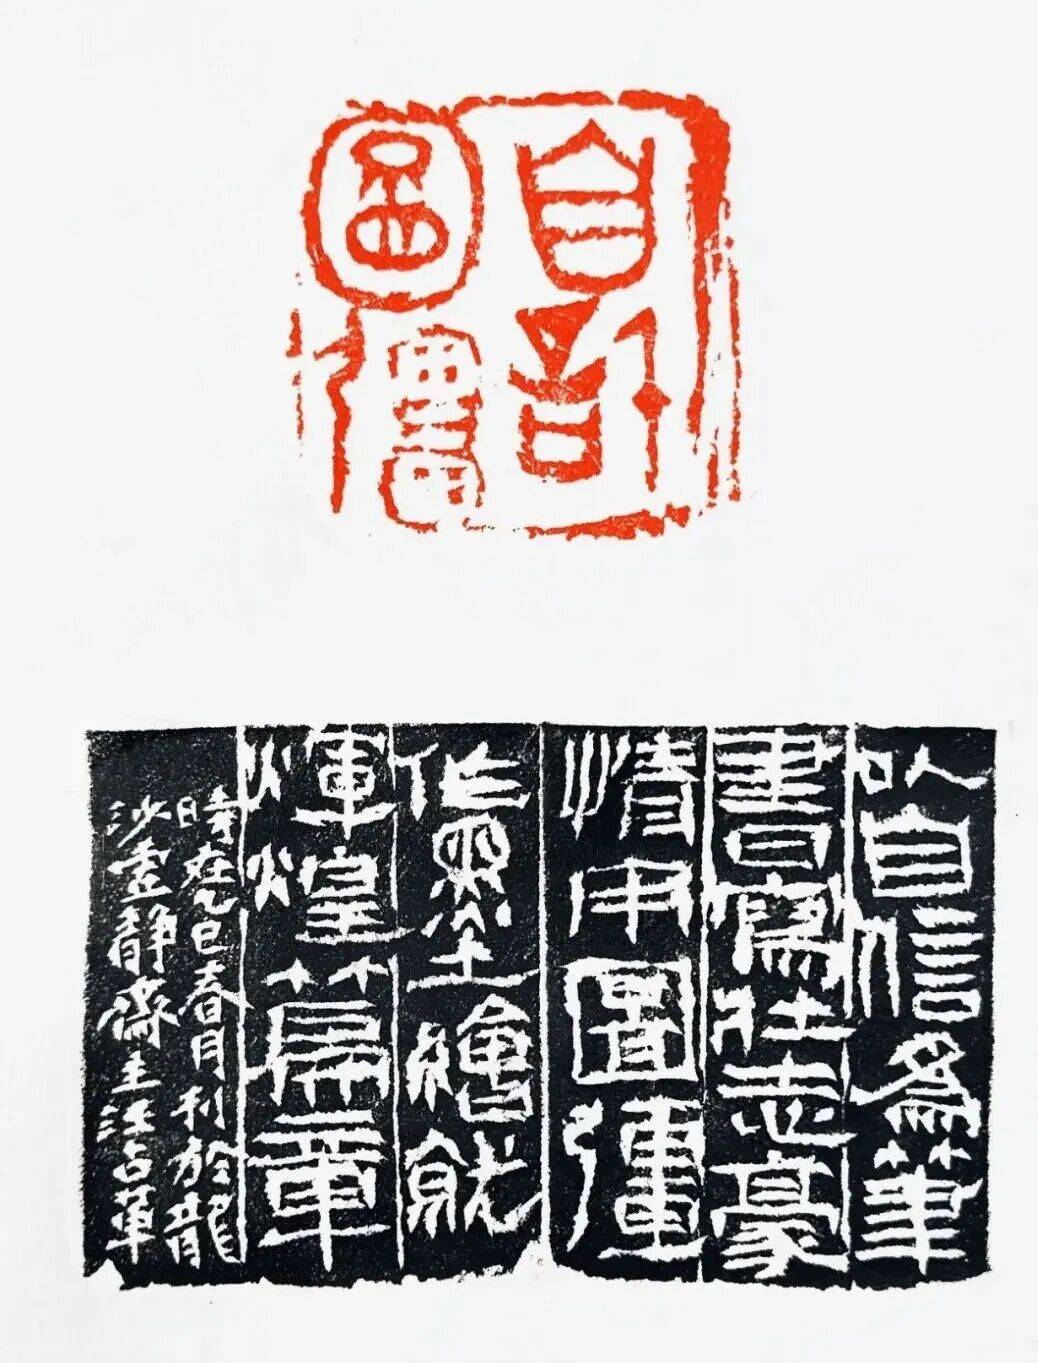 自信
圖彊
以自信爲筆
書寫壯志豪
情用圖彊
作墨繪就
輝煌篇章
時在乙巳春月刊於龍
沙壹靜齋主汪占軍